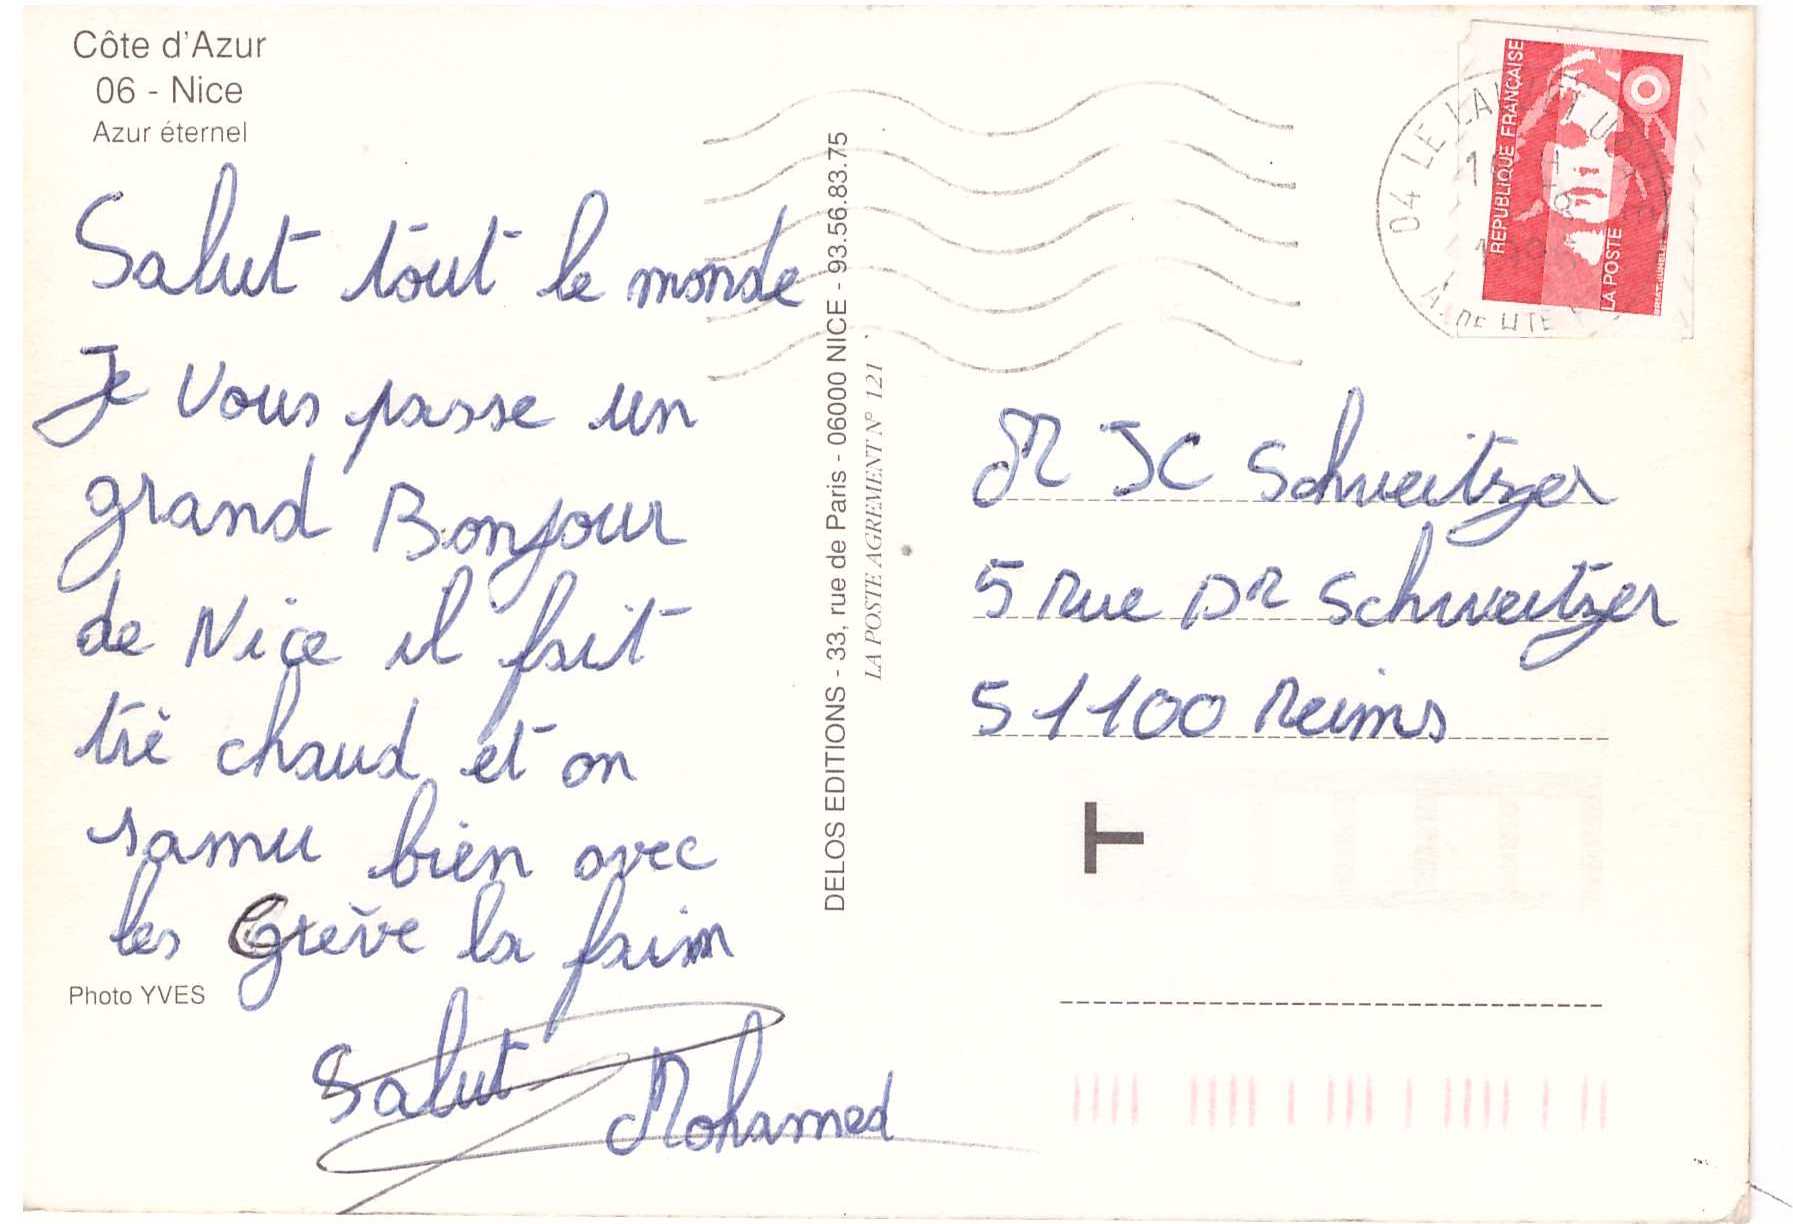 Côte d'Azur
06 - Nice
Azur éternel
Salut tout le monde
Je vous passe un
grand Bonjour
de Nice il fait
trè chaud et on
samu bien avec
les Grève la faim
Salut
Mohamed
Photo YVES
DELOS EDITIONS - 33, rue de Paris - 06000 NICE - 93.56.83.75
LA POSTE AGREMENT N° 121
04 LE
REPUBLIQUE FRANÇAISE
LA POSTE
M JC Schweitzer
5 Rue DR Schweitzer
51100 Reims
T